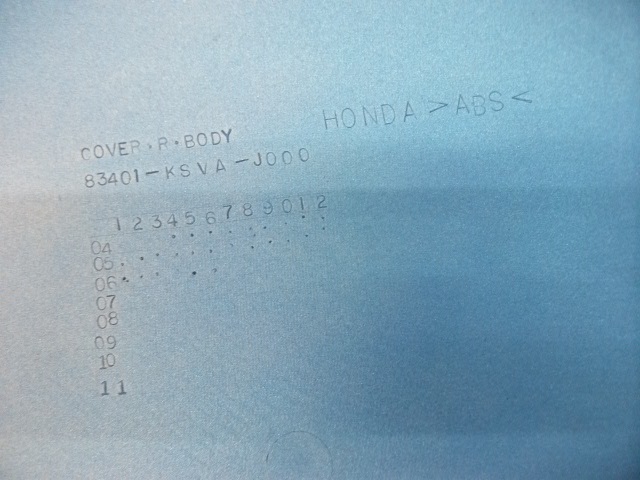 HONDA >ABS<
COVER,R,BODY
83401-KSVA-J000
1 2 3 4 5 6 7 8 9 0 1 2
04
05
06
07
08
09
10
11